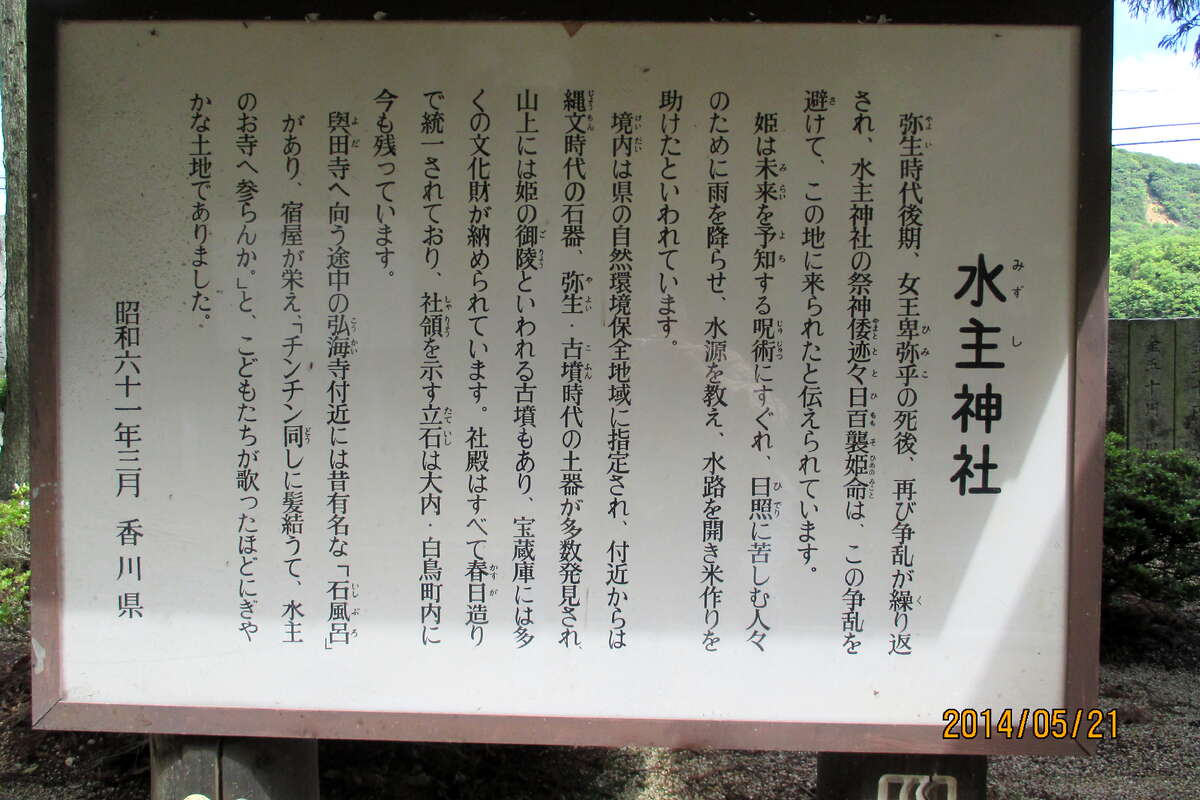 水主神社
弥生時代後期、女王卑弥乎の死後、再び争乱が繰り返
され、水主神社の祭神倭迹々日百襲姫命は、この争乱を
避けて、この地に来られたと伝えられています。
姫は未来を予知する呪術にすぐれ、日照に苦しむ人々
のために雨を降らせ、水源を教え、水路を開き米作りを
助けたといわれています。
境内は県の自然環境保全地域に指定され、付近からは
縄文時代の石器、弥生・古墳時代の土器が多数発見され
山上には姫の御陵といわれる古墳もあり、宝蔵庫には多
くの文化財が納められています。社殿はすべて春日造り
で統一されており、社領を示す立石は大内・白鳥町内に
今も残っています。
與田寺へ向う途中の弘海寺付近には昔有名な「石風呂」
があり、宿屋が栄え、「チンチン同しに髪結うて、水主
のお寺へ参らんか。」と、こどもたちが歌ったほどにぎや
かな土地でありました。
昭和六十一年三月 香川県
2014/05/21